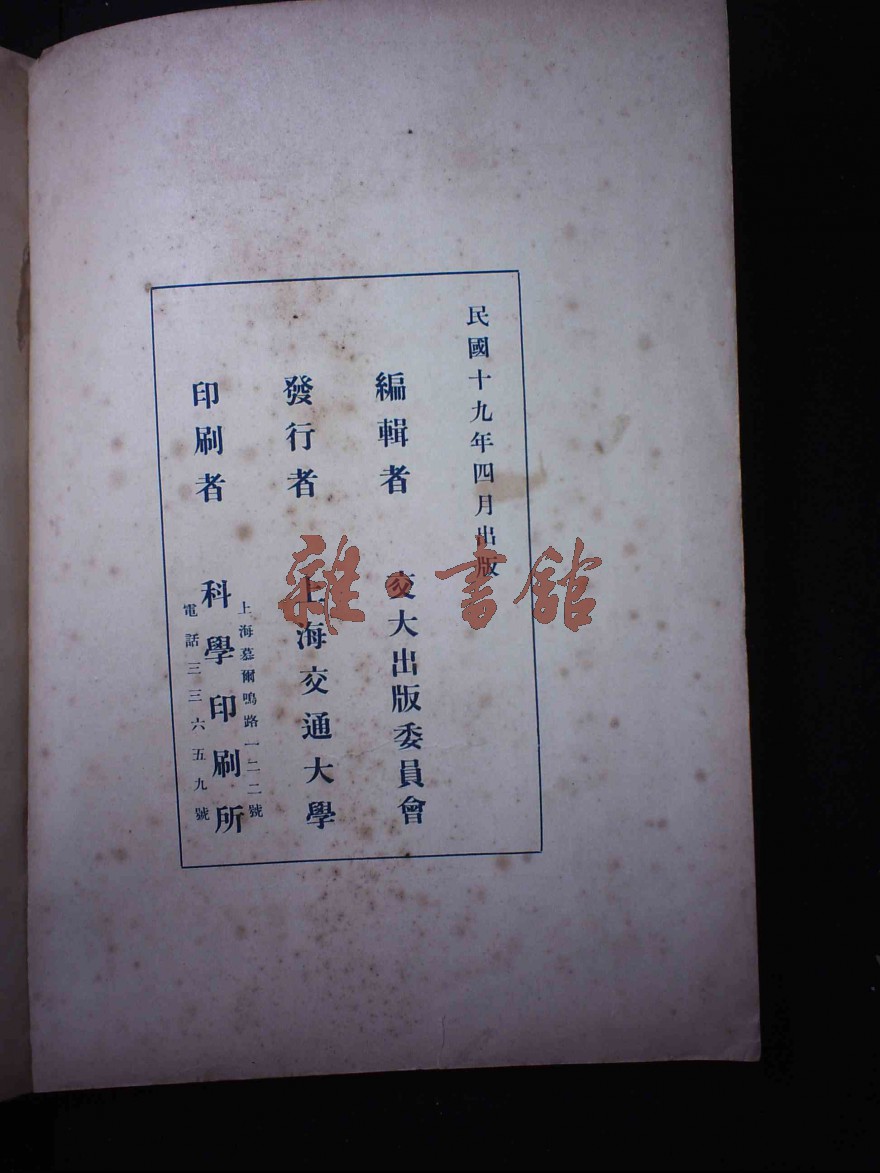 民國十九年四月出版
編輯者 交大出版委員會
發行者 上海交通大學
印刷者 科學印刷所
上海慕爾鳴路一二二號
電話三三六五九號
雜·書館